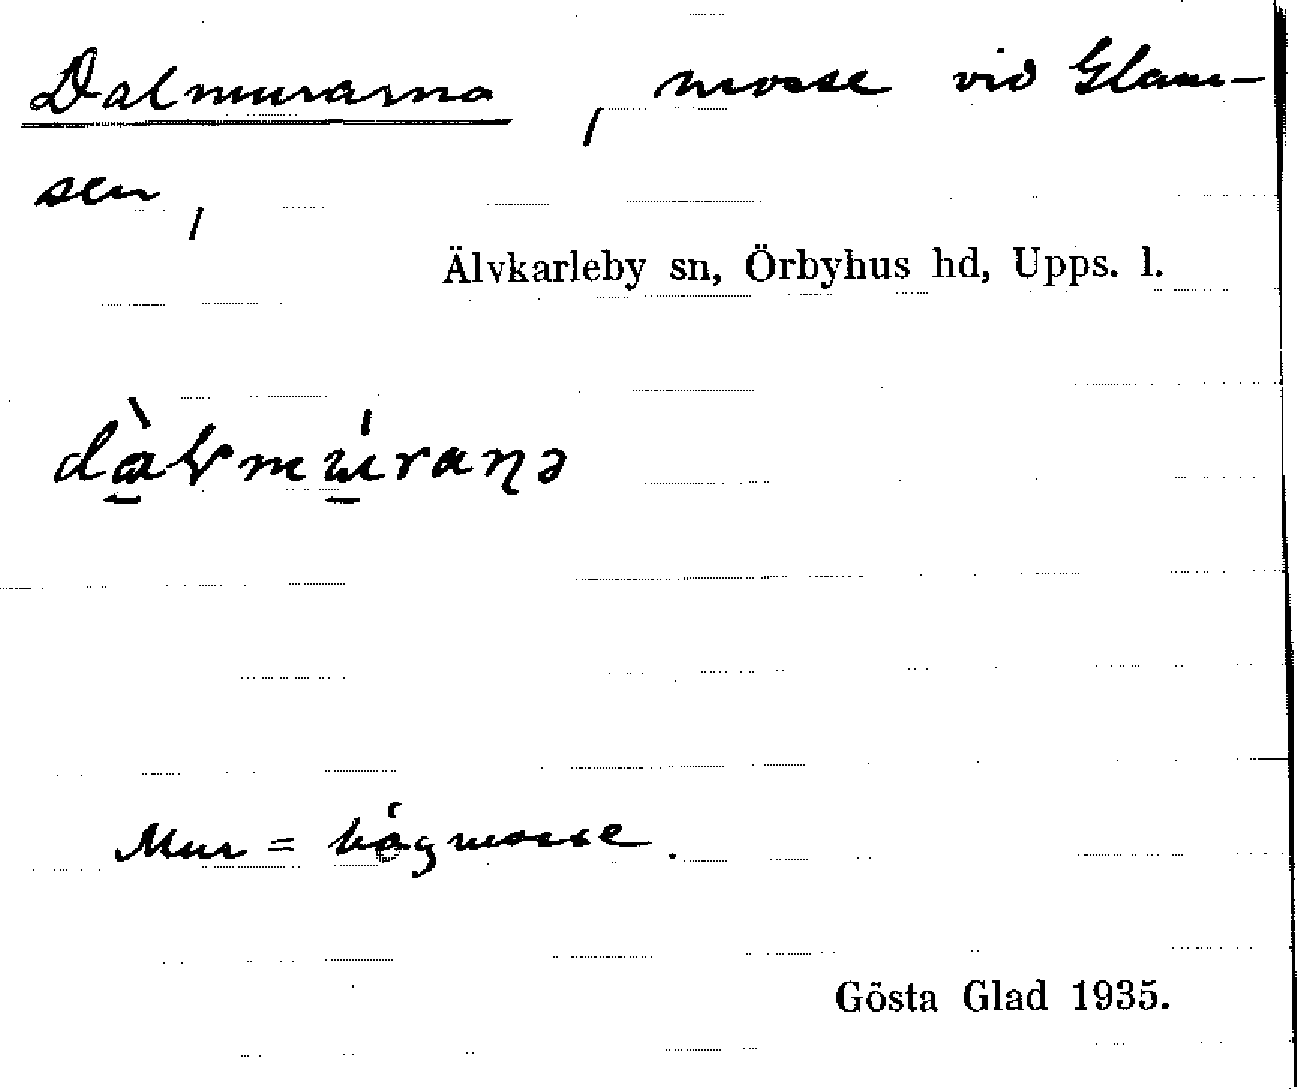 Dalmurarna, mosse vid Glam-
sen,
Älvkarleby sn, Örbyhus hd, Upps. l.
Mur = högmosse.
Gösta Glad 1935.